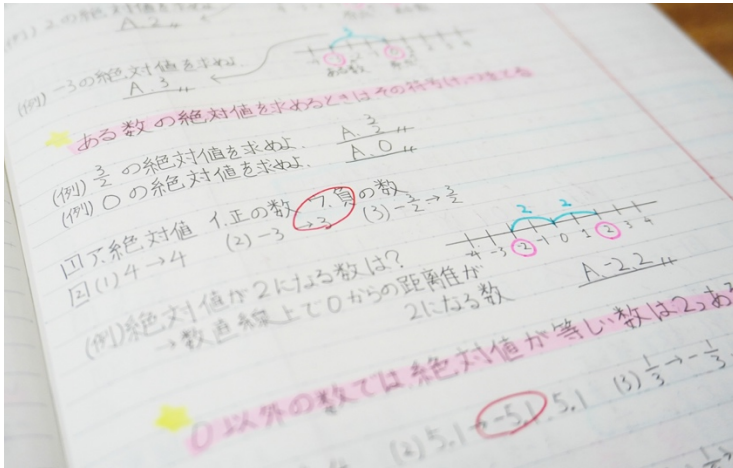 (例) 2の絶対値を求めよ
A.2
(例) -3の絶対値を求めよ.
A.3
ある数の絶対値を求めるときはその符号
(例) 3/2 の絶対値を求めよ. A. 3/2
(例) 0の絶対値を求めよ. A.0
1 ア.絶対値 イ.正の数 ウ.負の数
2 (1) 4→4 (2) -3→3 (3) -3/2→3/2
(例)絶対値が2になる数は?
→数直線上で0からの距離が
2になる数
2 2
-4 -3 -2 -1 0 1 2 3 4
A.-2.2
0以外の数では絶対値が等しい数は2つある
(2) 5.1→-5.1.5.1 (3) 1/3→-1/3